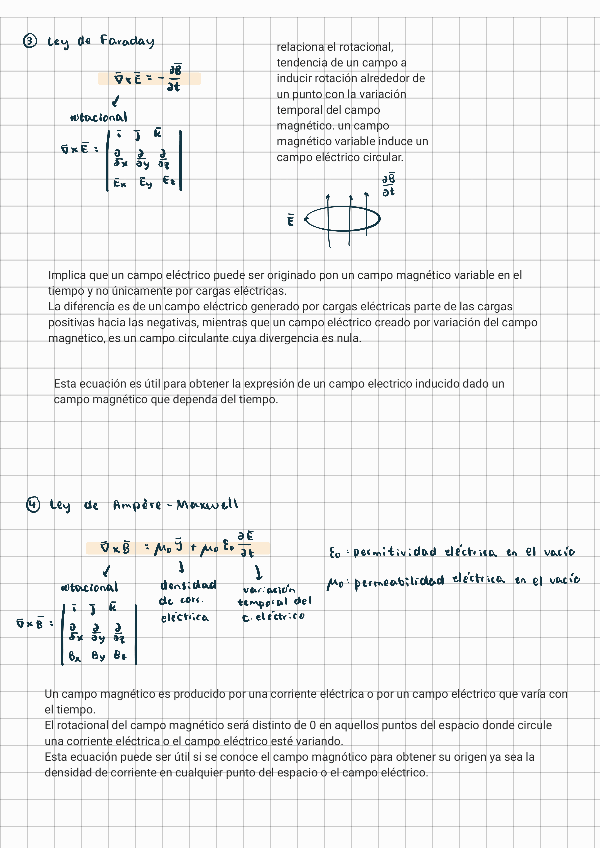 ③ Ley de Faraday
∇̄ x Ē = - ∂B̄/∂t
rotacional
∇̄ x Ē = | ī j̄ k̄ |
| ∂/∂x ∂/∂y ∂/∂z |
| Ex Ey Ez |
relaciona el rotacional,
tendencia de un campo a
inducir rotación alrededor de
un punto con la variación
temporal del campo
magnético. un campo
magnético variable induce un
campo eléctrico circular.
∂B̄/∂t
Ē
Implica que un campo eléctrico puede ser originado pon un campo magnético variable en el
tiempo y no únicamente por cargas eléctricas.
La diferencia es de un campo eléctrico generado por cargas eléctricas parte de las cargas
positivas hacia las negativas, mientras que un campo eléctrico creado por variación del campo
magnetico, es un campo circulante cuya divergencia es nula.
Esta ecuación es útil para obtener la expresión de un campo electrico inducido dado un
campo magnético que dependa del tiempo.
④ Ley de Ampère - Maxwell
∇̄ x B̄ = μ₀ J̄ + μ₀ ε₀ ∂Ē/∂t
rotacional
densidad
de corr.
eléctrica
variación
temporal del
c. eléctrico
∇̄ x B̄ = | ī j̄ k̄ |
| ∂/∂x ∂/∂y ∂/∂z |
| Bx By Bz |
ε₀: permitividad eléctrica en el vacío
μ₀: permeabilidad eléctrica en el vacío
Un campo magnético es producido por una corriente eléctrica o por un campo eléctrico que varía con
el tiempo.
El rotacional del campo magnético será distinto de 0 en aquellos puntos del espacio donde circule
una corriente eléctrica o el campo eléctrico esté variando.
Esta ecuación puede ser útil si se conoce el campo magnótico para obtener su origen ya sea la
densidad de corriente en cualquier punto del espacio o el campo eléctrico.